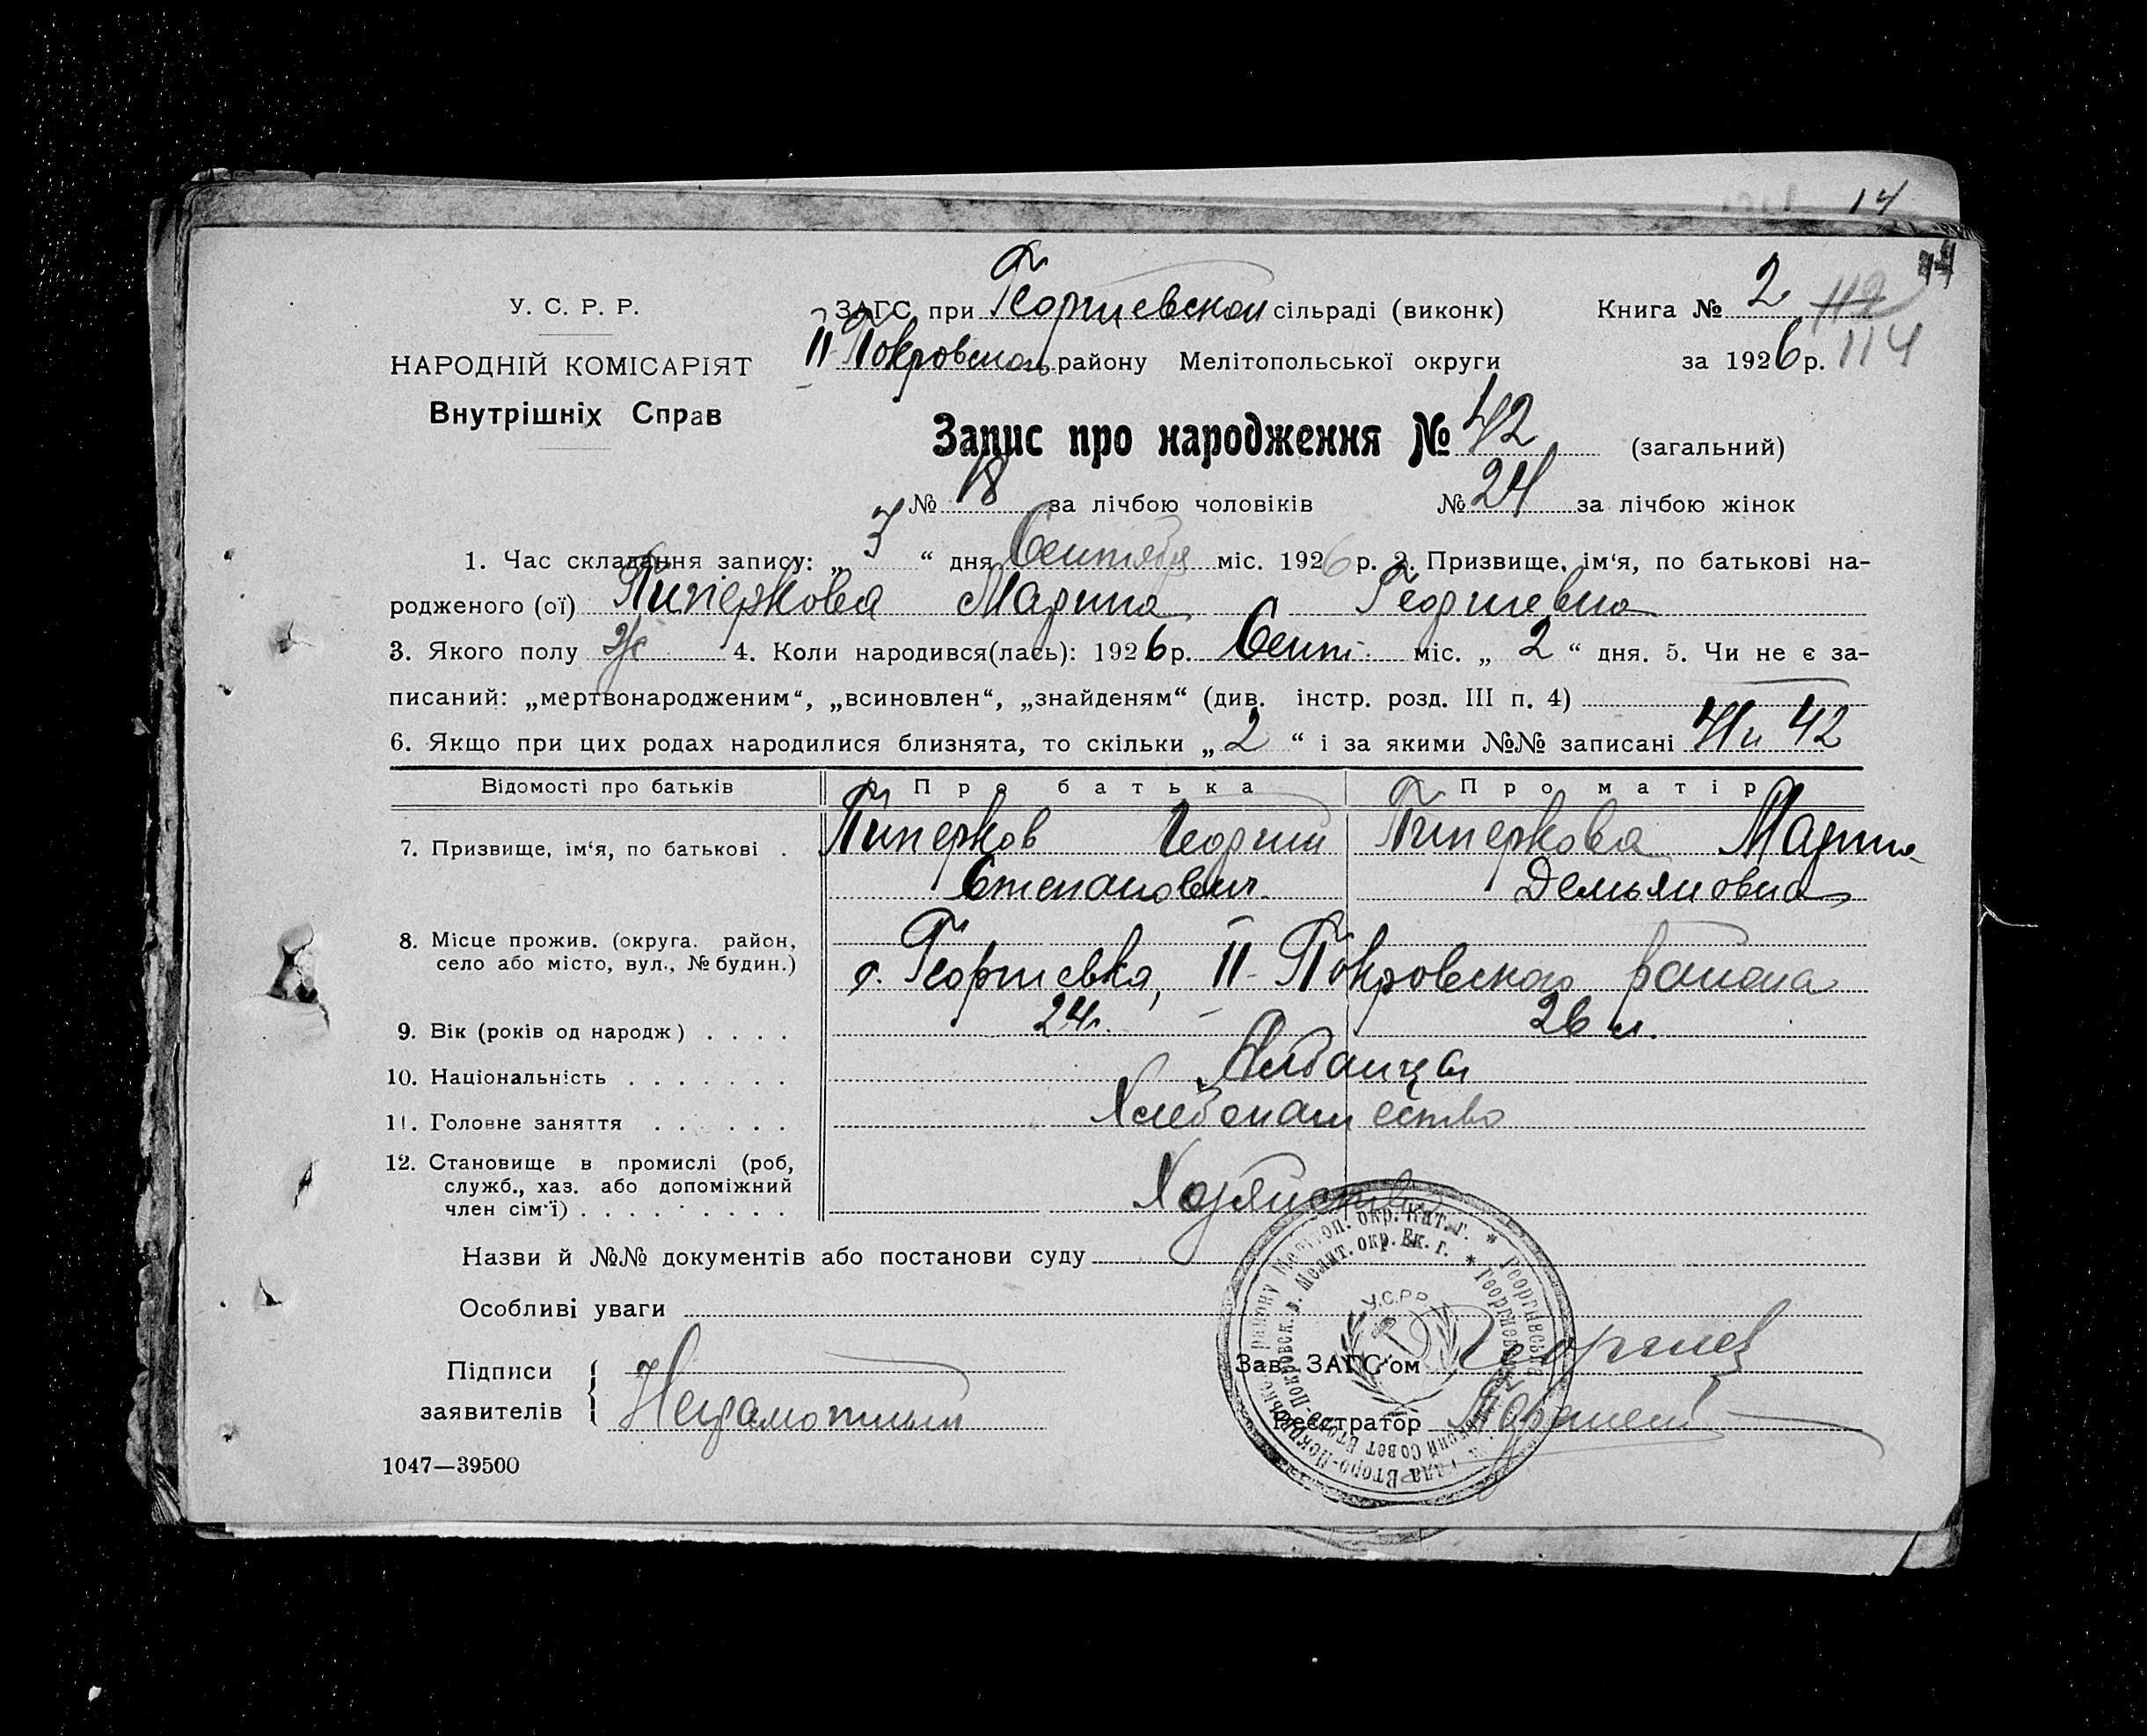 14
44
У. С. Р. Р.
НАРОДНІЙ КОМІСАРІЯТ
Внутрішніх Справ
ЗАГС при Георгиевской сільраді (виконк) Книга № 2 112
ІІ Покровского району Мелітопольської округи за 1926 р. 114
Запис про народження № 42 (загальний)
№ 18 за лічбою чоловіків № 24 за лічбою жінок
1. Час складання запису: „ 3 “ дня Сентября міс. 1926 р. 2. Призвище, ім‘я, по батькові на-
родженого (ої) Пиперкова Марина Георгиевна
3. Якого полу ж 4. Коли народився(лась): 1926 р. Сент. міс. „ 2 “ дня. 5. Чи не є за-
писаний: „мертвонародженим“, „всиновлен“, „знайденям“ (див. інстр. розд. III п. 4)
6. Якщо при цих родах народилися близнята, то скільки „ 2 “ і за якими №№ записані 41 и 42
Відомості про батьків Про батька Про матір
7. Призвище, ім‘я, по батькові . Пиперков Георгий Пиперкова Мария
Степанович. Демьяновна
8. Місце прожив. (округа. район,
село або місто, вул., № будин.) с. Георгиевка, ІІ-Покровского района
9. Вік (років од народж) . . . . 24 г. 26 л.
10. Національність . . . . . . . Албанцы
11. Головне заняття . . . . . . Хлебопашество
12. Становище в промислі (роб,
служб., хаз. або допоміжний
член сім‘ї) . . . . . . . . . Хозяйство
Назви й №№ документів або постанови суду
Особливі уваги
Підписи
заявителів { Неграмотный
Зав. ЗАГС‘ом Георгиев
Реєстратор
У.С.Р.Р.
1047—39500